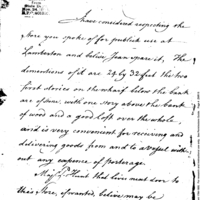 I have considered respecting the
Store you spoke of for publick use at
Lamberton and believe I can spare it, The
dimentions of it are 24 by 32 feet the two
first stories on the wharf below the bank
are of stone, with one story above the bank
of wood and a good loft over the whole
and is very convenient for receiving and
delivering goods from and to a vessel with
out any expence of porterage.
Maj. Hunt that lives next door to
this Store, if wanted, believe may be